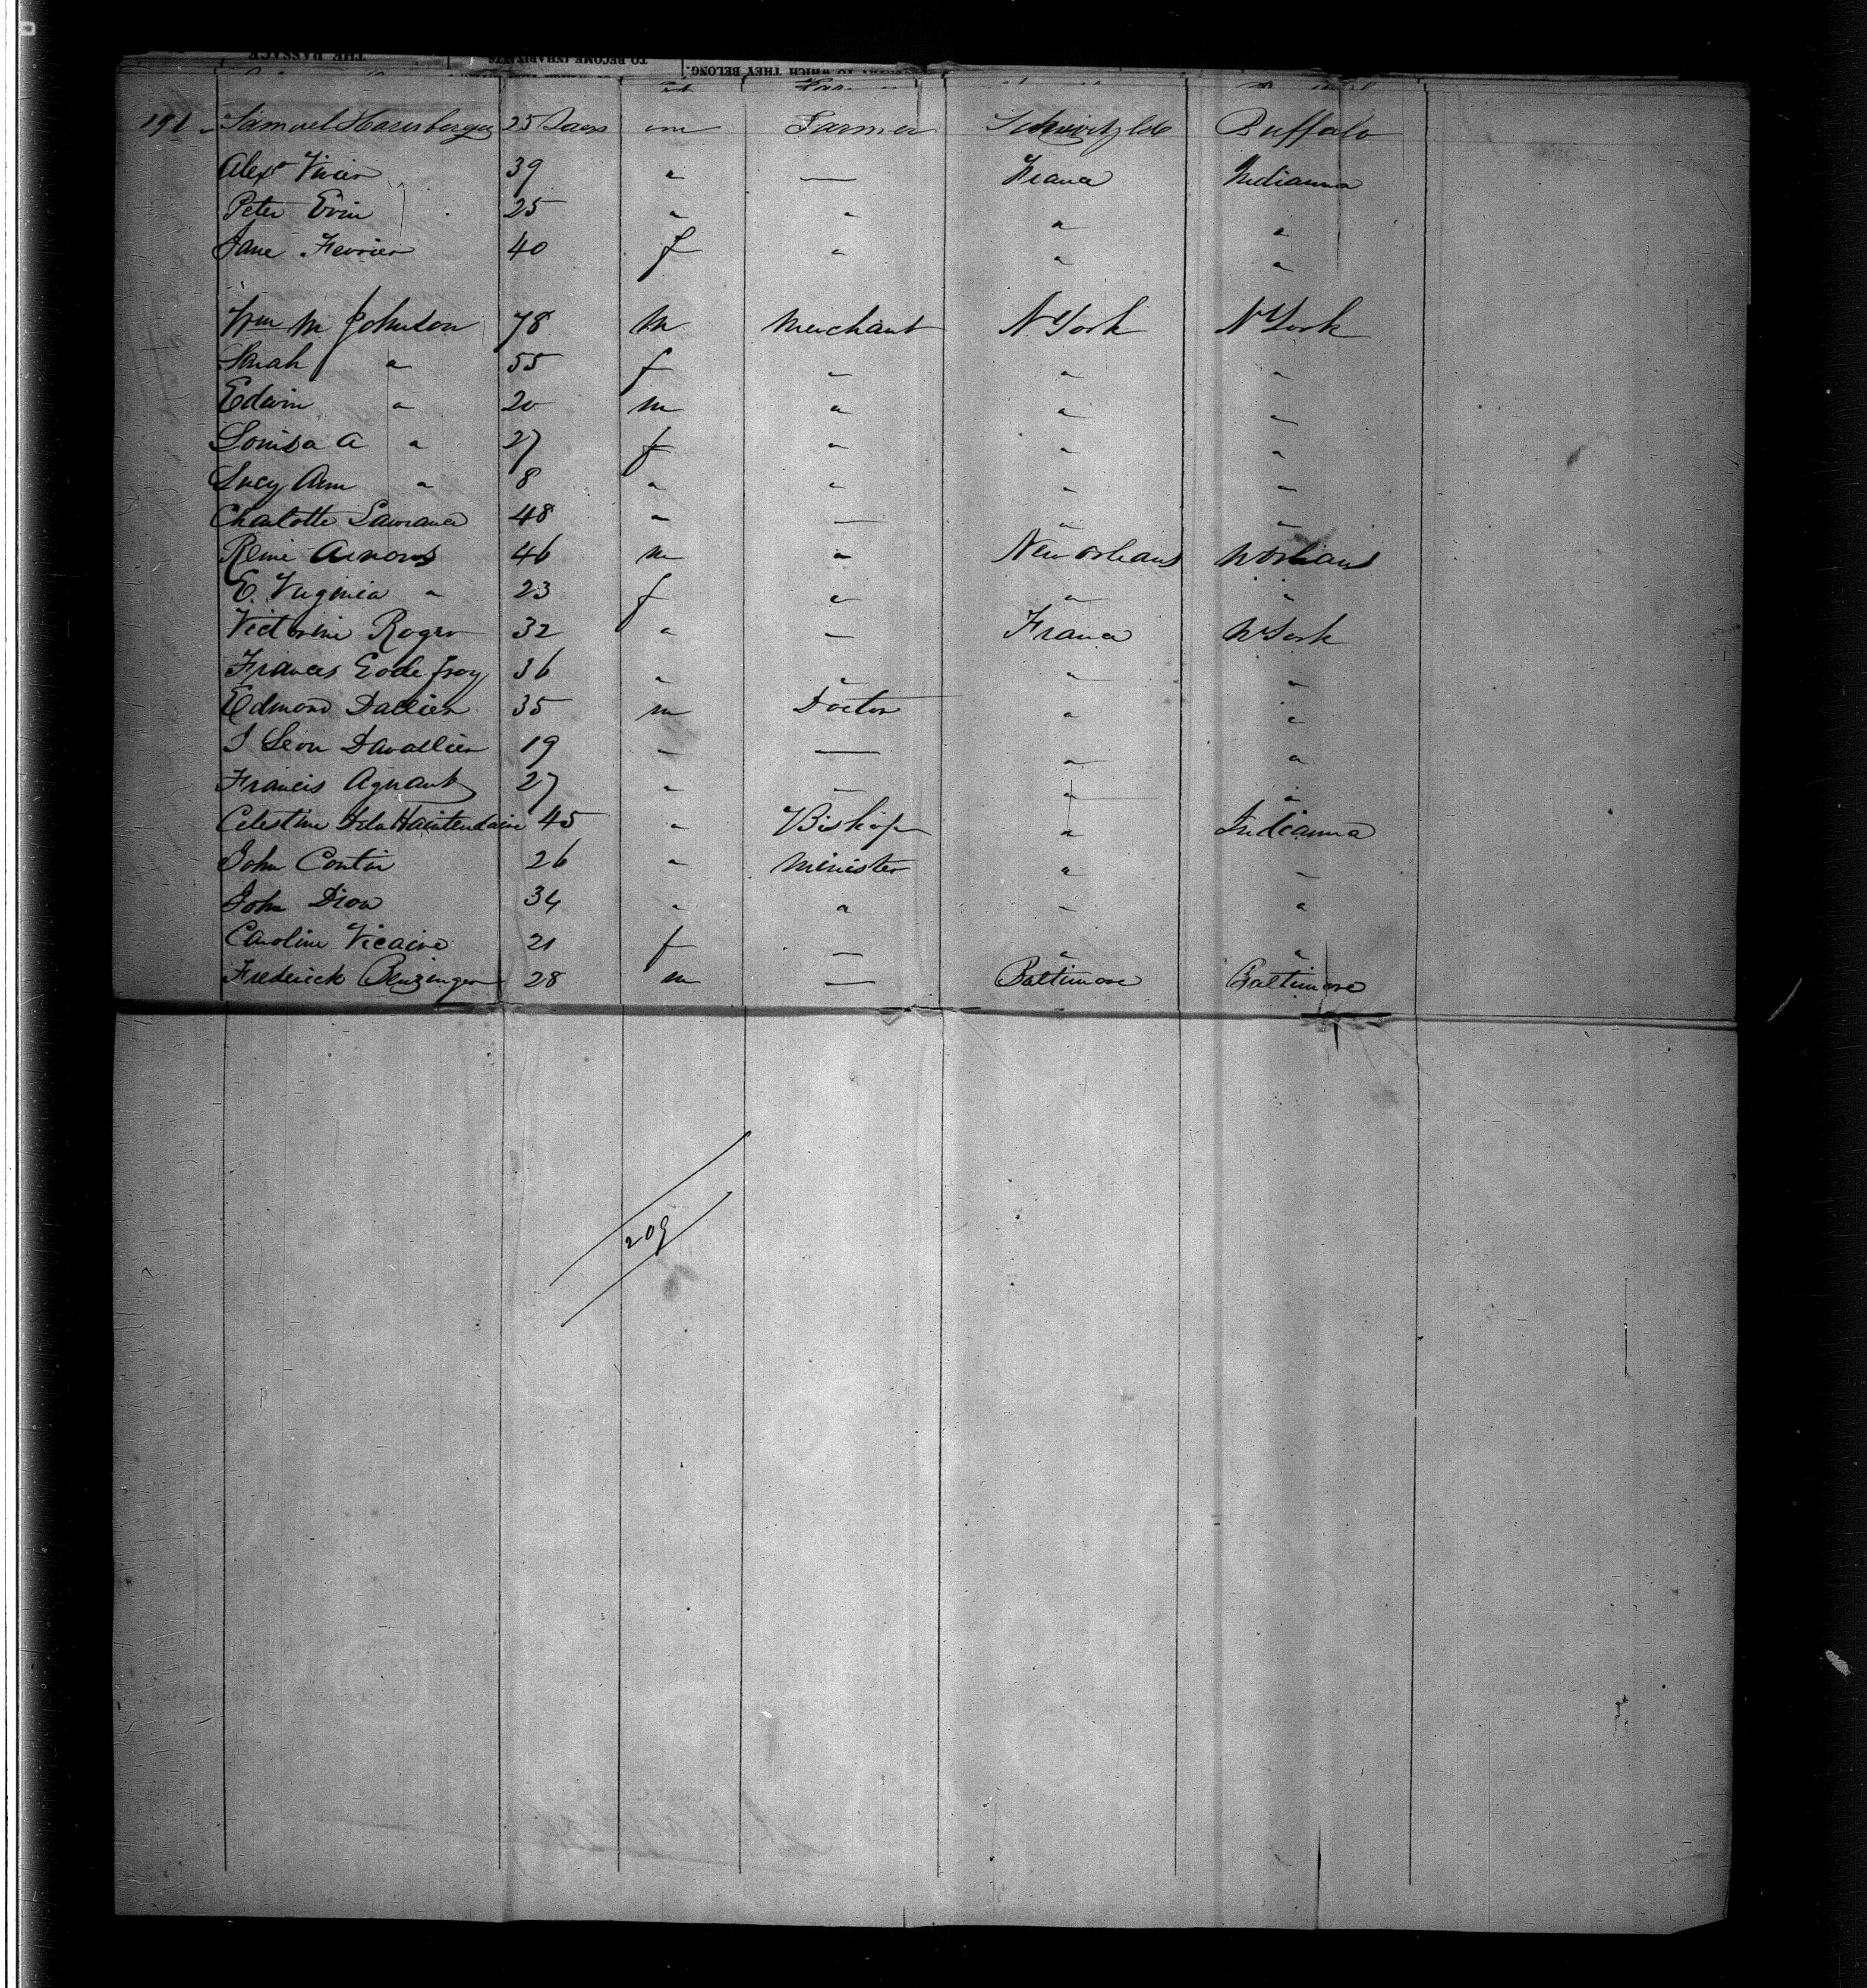 THE PASSAGE TO BECOME INHABITANTS TO WHICH THEY BELONG.
191 Samuel Harrisberger 25 Years m Farmer Schwitzld Buffalo
Alexr Vivier 39 " — France Indianna
Peter Evin 25 " " " "
Jane Fevrier 40 f " " "
Wm M Johnson 78 M Merchant N York N York
Sarah " 55 f " " "
Edwin " 20 m " " "
Louisa A " 27 f " " "
Lucy Ann " 8 " " " "
Charlotte Lawrance 48 " — " "
Rene Arnous 46 m " New Orleans N Orleans
E. Virginia " 23 f " " "
Victorine Roger 32 " — France N York
Frances Godefroy 36 " " " "
Edmond Dallier 35 m Doctor " "
J Leon Davallier 19 " — " "
Francis Agnant 27 " — " "
Celestine DelaHaintendaine 45 " Bishop " Indianna
John Contin 26 " Minister " "
John Dion 34 " " " "
Caroline Vicaire 21 f — " "
Frederick Benzinger 28 m — Baltimore Baltimore
209